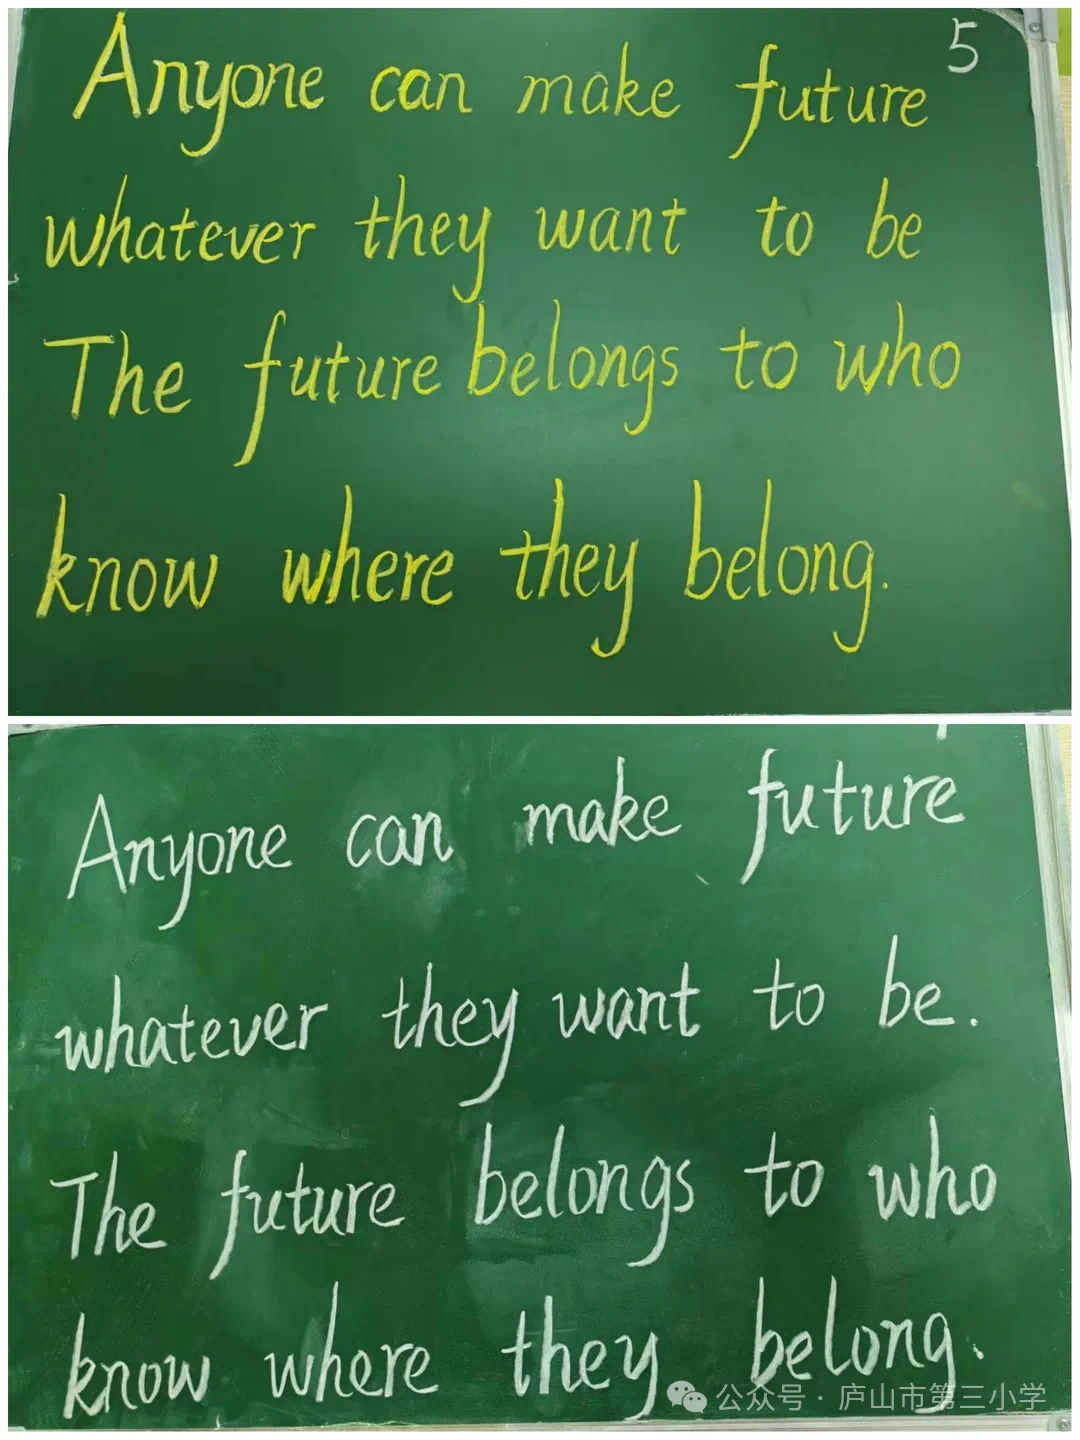 5
Anyone can make future
whatever they want to be
The future belongs to who
know where they belong.
Anyone can make future
whatever they want to be.
The future belongs to who
know where they belong.
公众号·庐山市第三小学